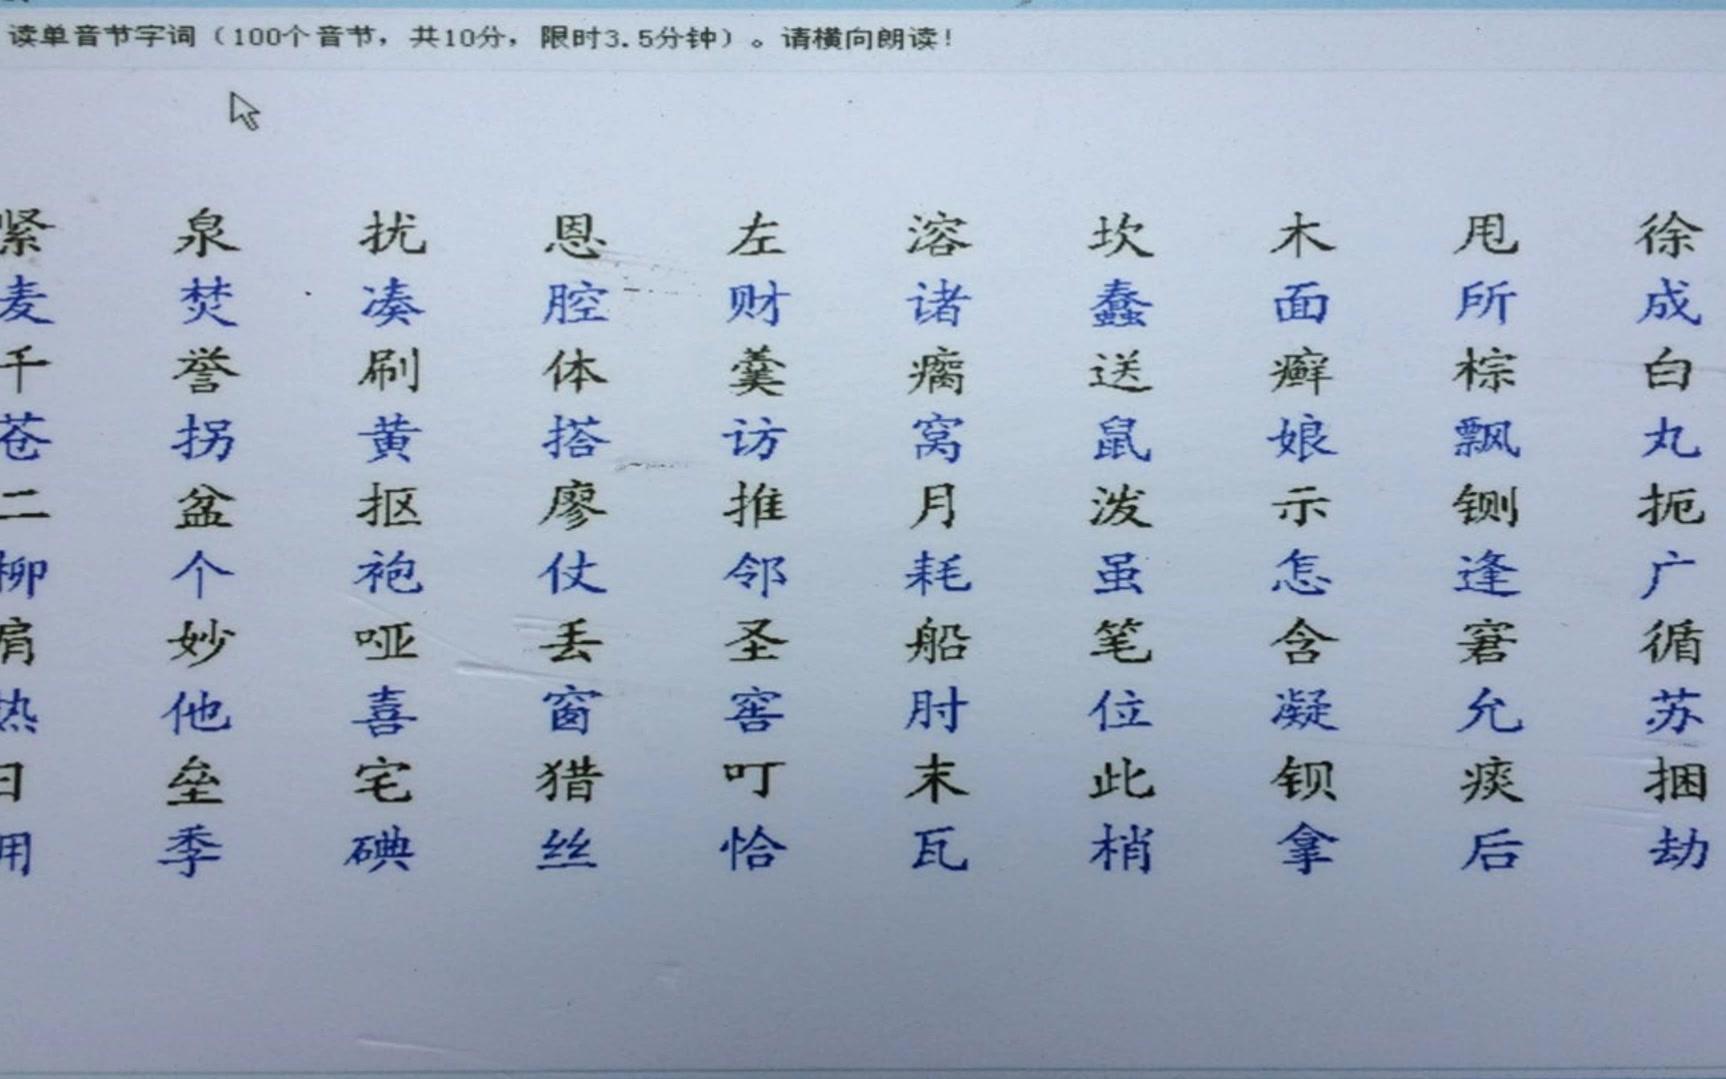 读单音节字词（100个音节，共10分，限时3.5分钟）。请横向朗读！
紧 泉 扰 恩 左 溶 坎 木 甩 徐
麦 焚 凑 腔 财 诸 蠢 面 所 成
千 誉 刷 体 羹 瘸 送 癣 棕 白
苍 拐 黄 搭 访 窝 鼠 娘 飘 丸
二 盆 抠 廖 推 月 泼 示 铡 扼
柳 个 袍 仗 邻 耗 虽 怎 逢 广
肩 妙 哑 丢 圣 船 笔 含 窘 循
热 他 喜 窗 窖 肘 位 凝 允 苏
日 垒 宅 猎 叮 末 此 钡 痰 捆
用 季 碘 丝 恰 瓦 梢 拿 后 劫